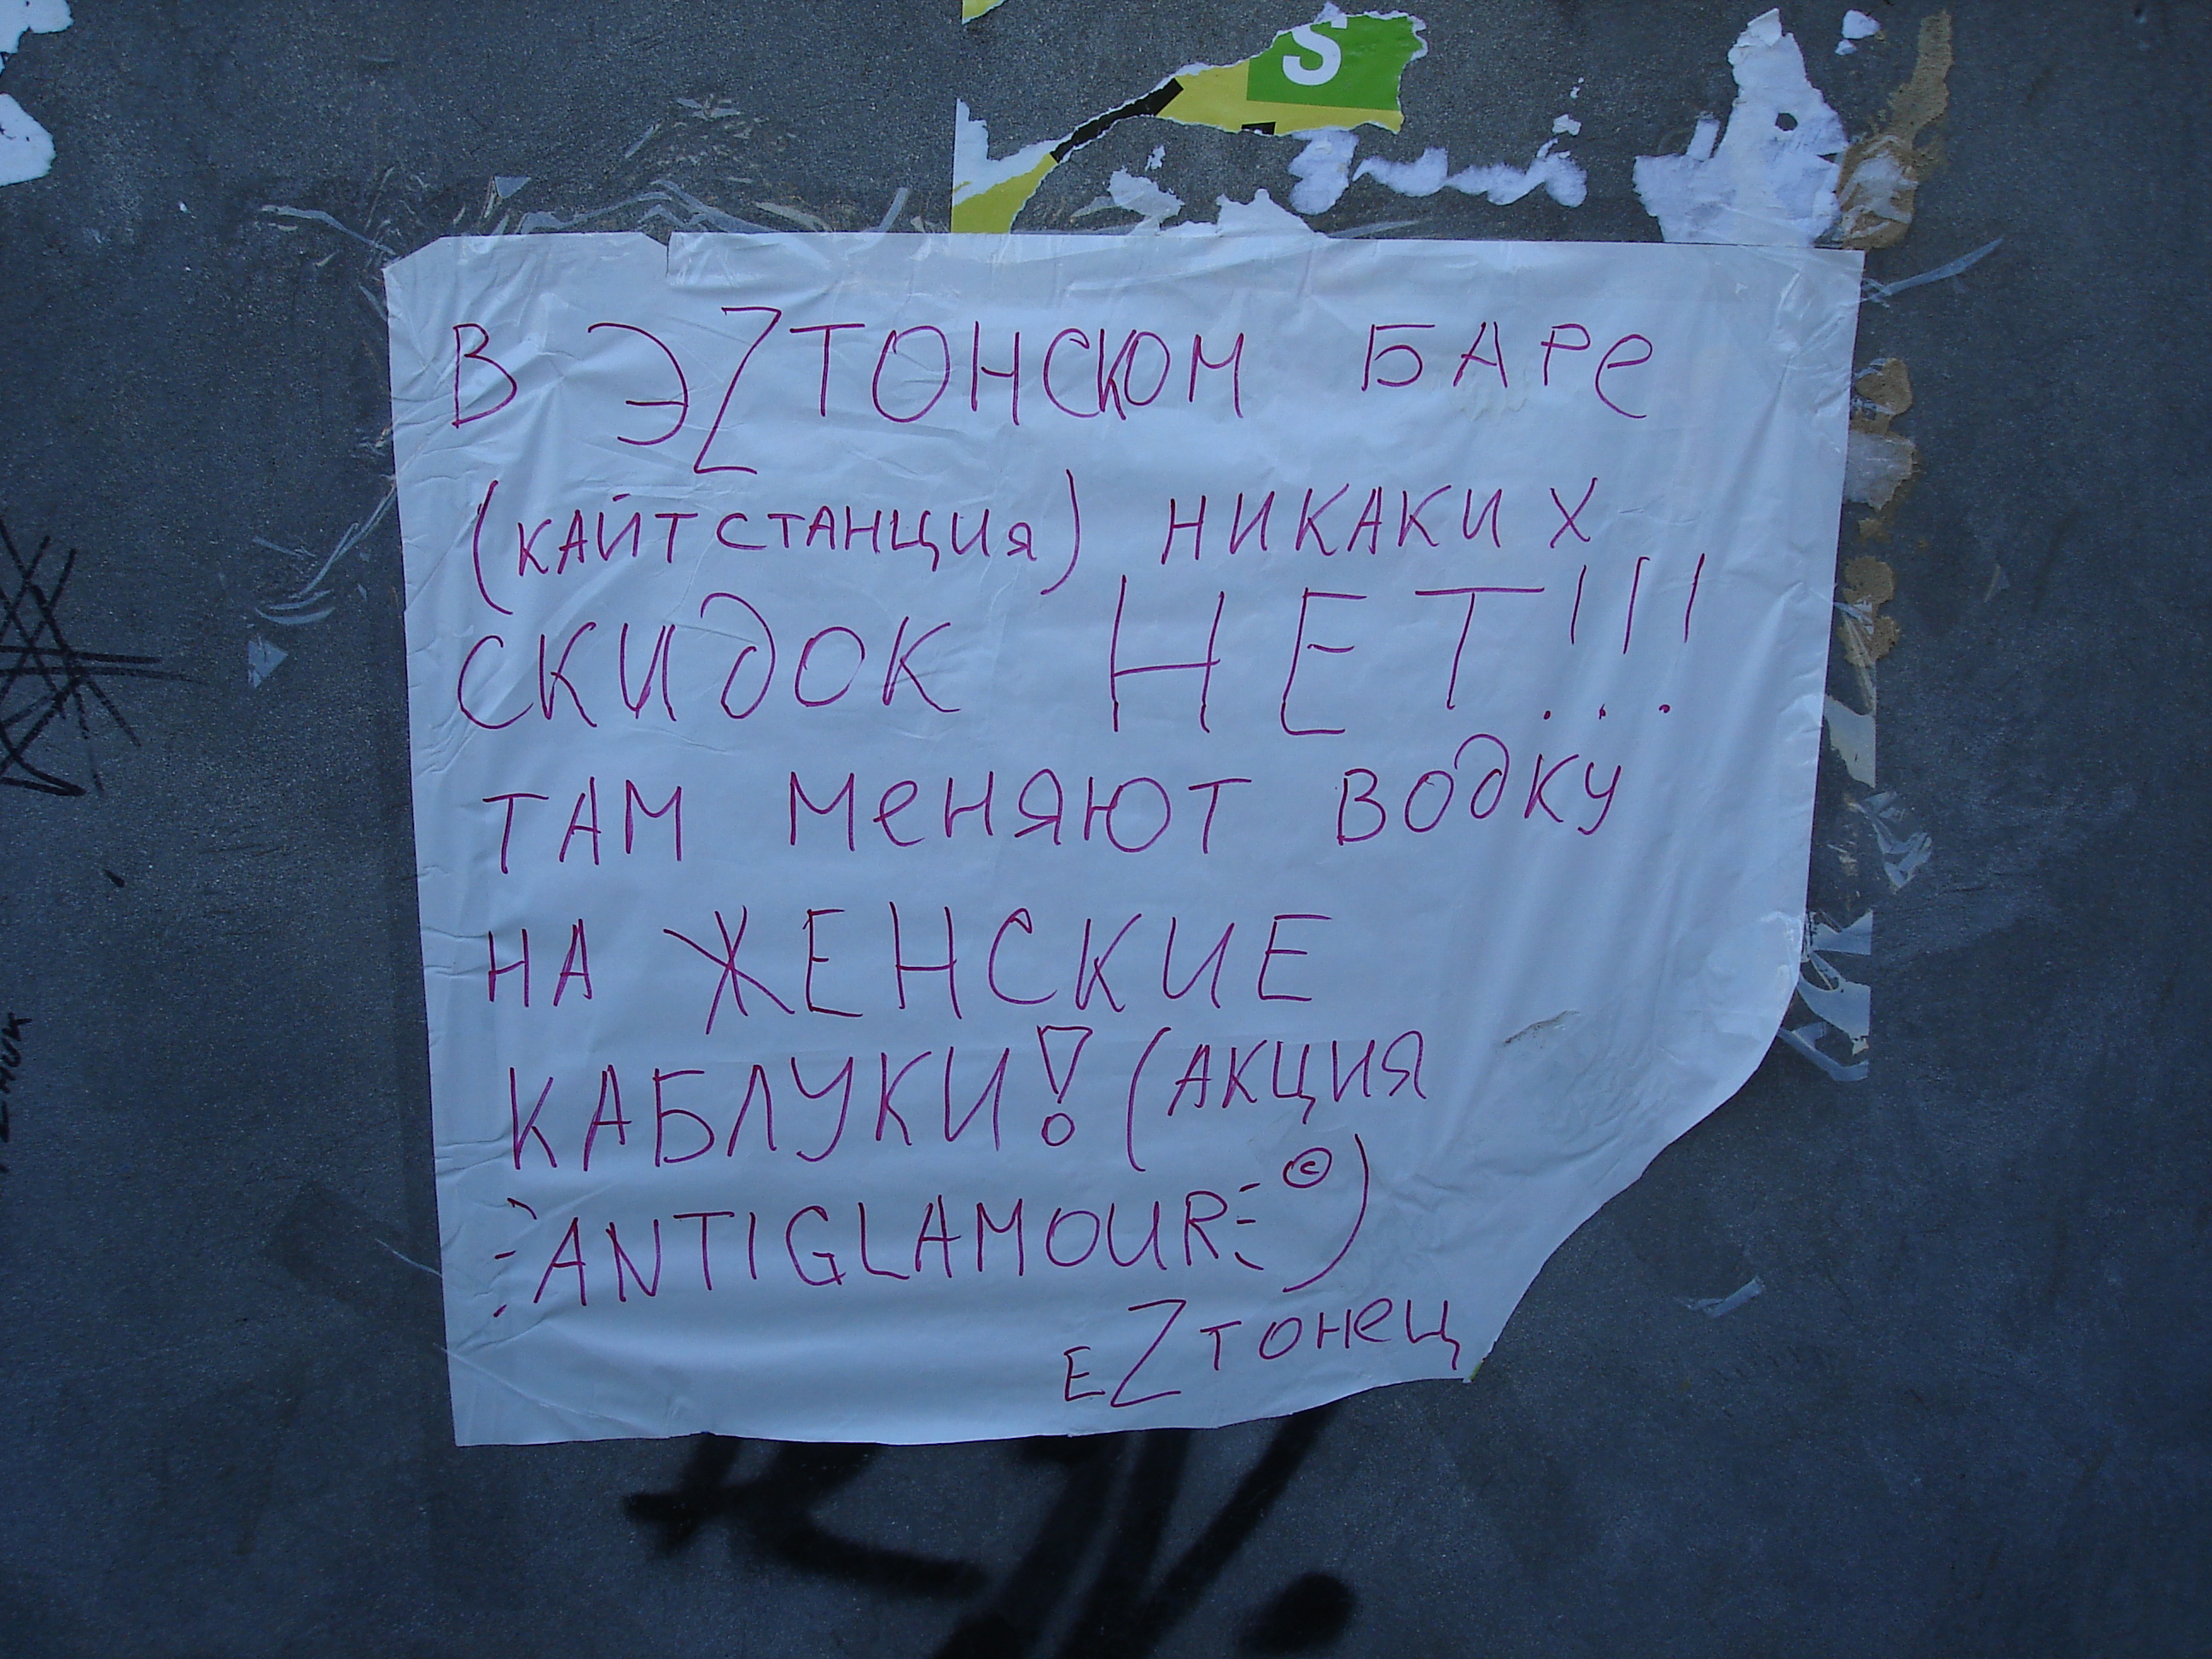 S
В ЭZТОНСКОМ БАРе
(КАЙТСТАНЦИЯ) НИКАКИХ
СКИДОК НЕТ!!!
ТАМ МеНЯЮТ ВОДКУ
НА ЖЕНСКИЕ
КАБЛУКИ! (АКЦИЯ
ANTIGLAMOUR ©)
EZтонец